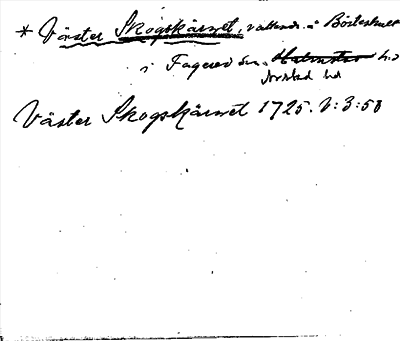 * Väster Skogskärnet, vattendr. i Börteshult
i Fagered sn. Halmstad hd
Årstad hd
Väster Skogskärnet 1725. V: 3: 58